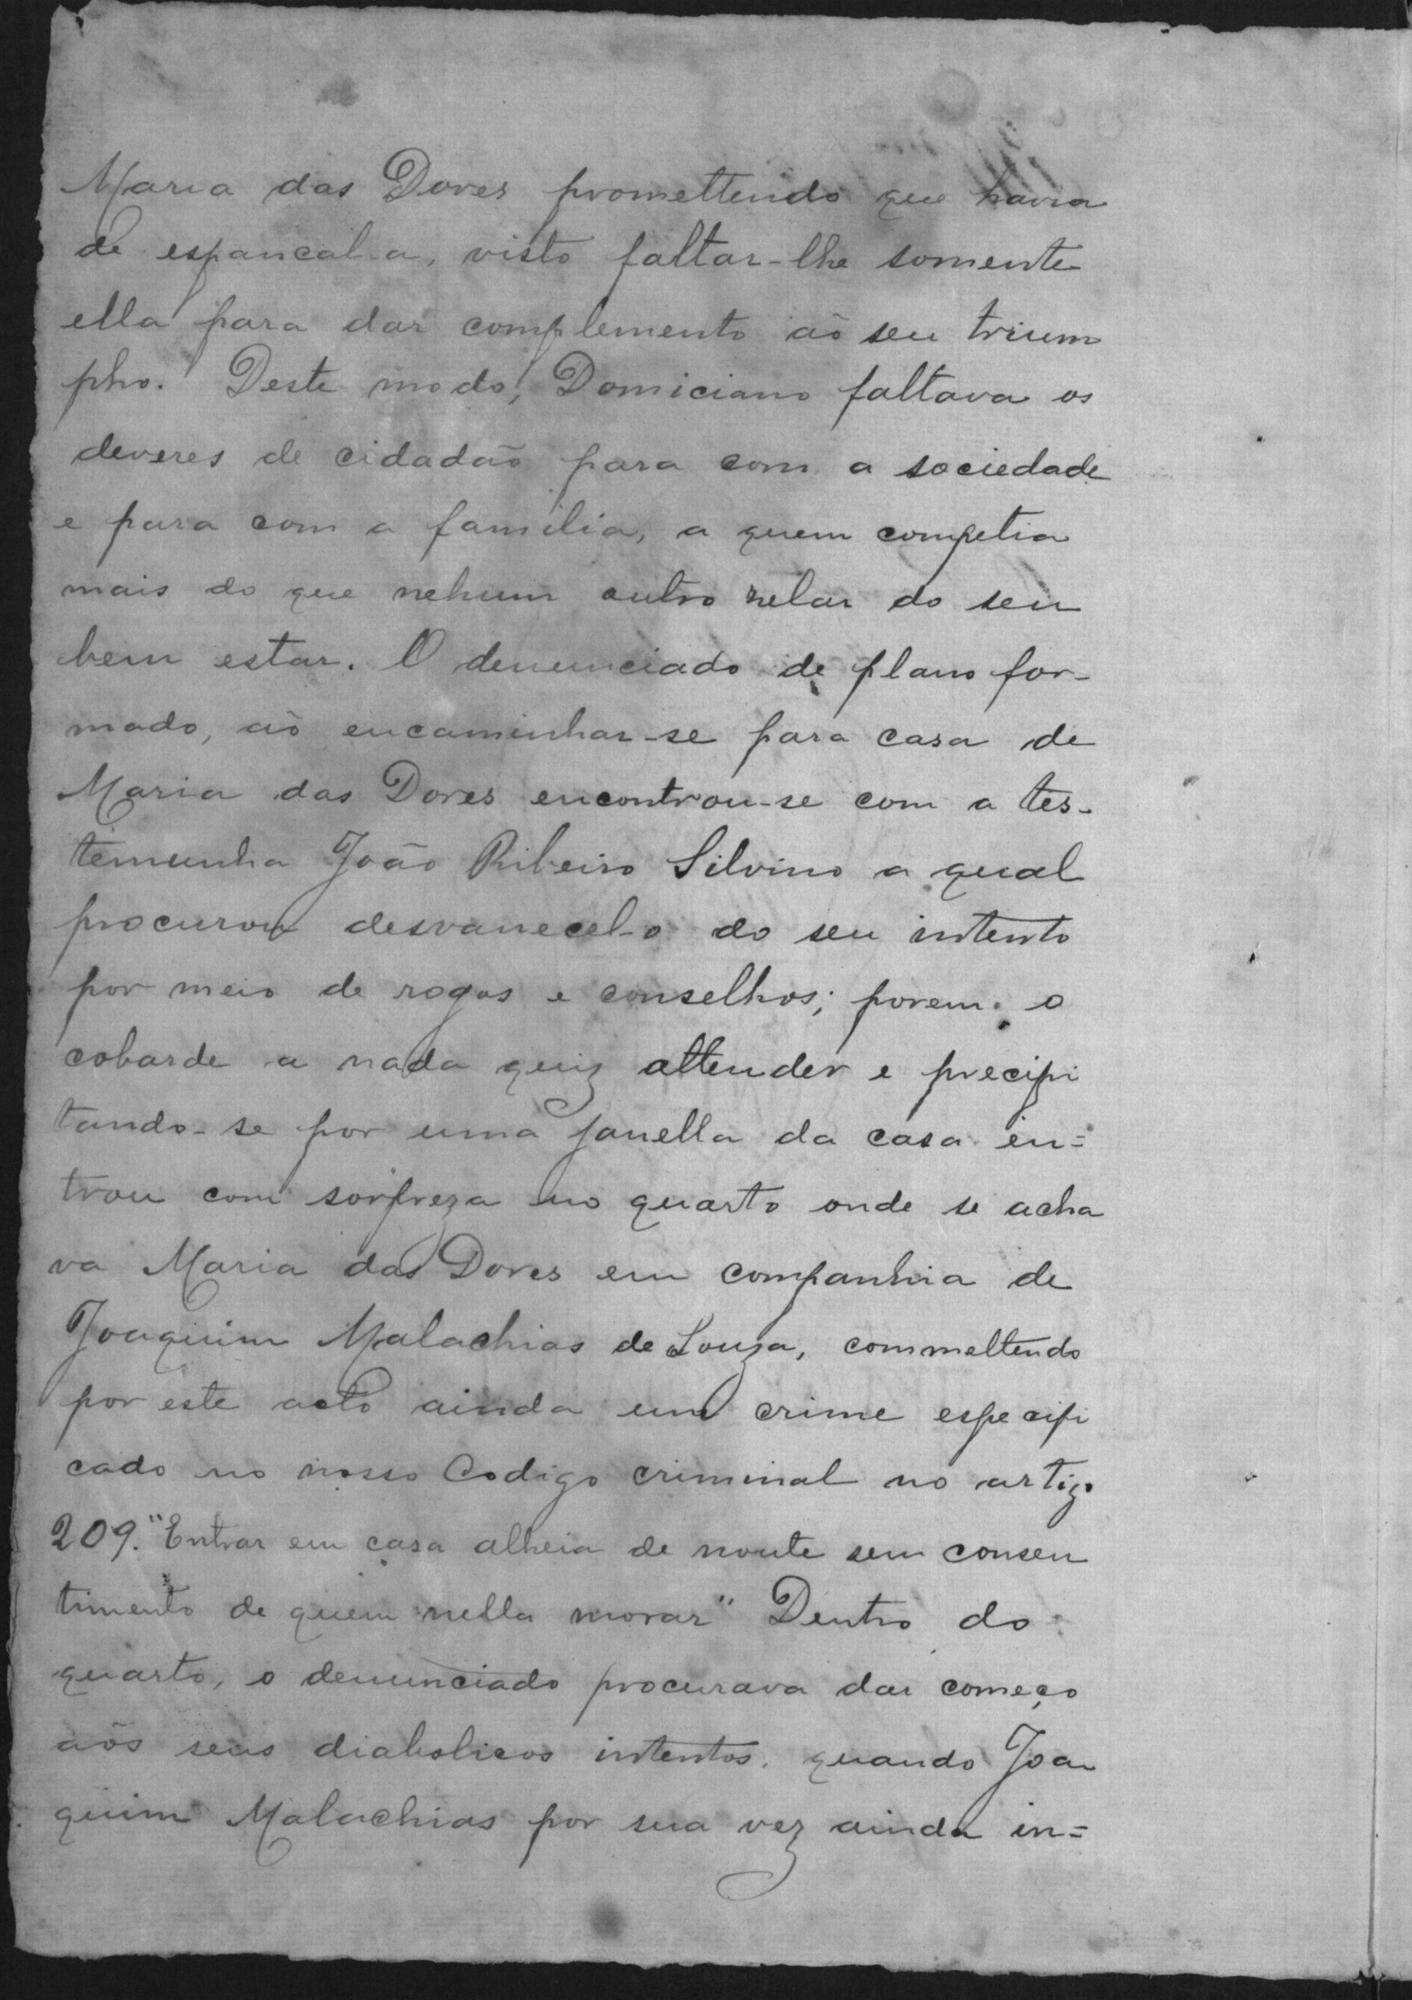 Maria das Dores promettendo que havia
de espancal-a, visto faltar-lhe somente
ella para dar complemento aõ seu trium
pho. Deste modo, Domiciano faltava os
deveres de cidadão para com a sociedade
e para com a familia, a quem competia
mais do que nehum outro zelar do seu
bem estar. O denunciado de plano for-
mado, aõ encaminhar-se para casa de
Maria das Dores encontrou-se com a tes-
temunha João Ribeiro Silvino a qual
procurou desvanecel-o do seu intento
por meio de rogos e conselhos; porem o
cobarde a nada quiz attender e precipi
tando-se por uma janella da casa en=
trou com sorpreza no quarto onde se acha
va Maria das Dores em companhia de
Joaquim Malachias de Souza, commettendo
por este acto ainda um crime especifi
cado no nosso Codigo criminal no artigo
209. "Entrar em casa alheia de noute sem consen
timento de quem nella morar" Dentro do
quarto, o denunciado procurava dar começo
aõs seus diabolicos intentos, quando Joa
quim Malachias por sua vez ainda in=